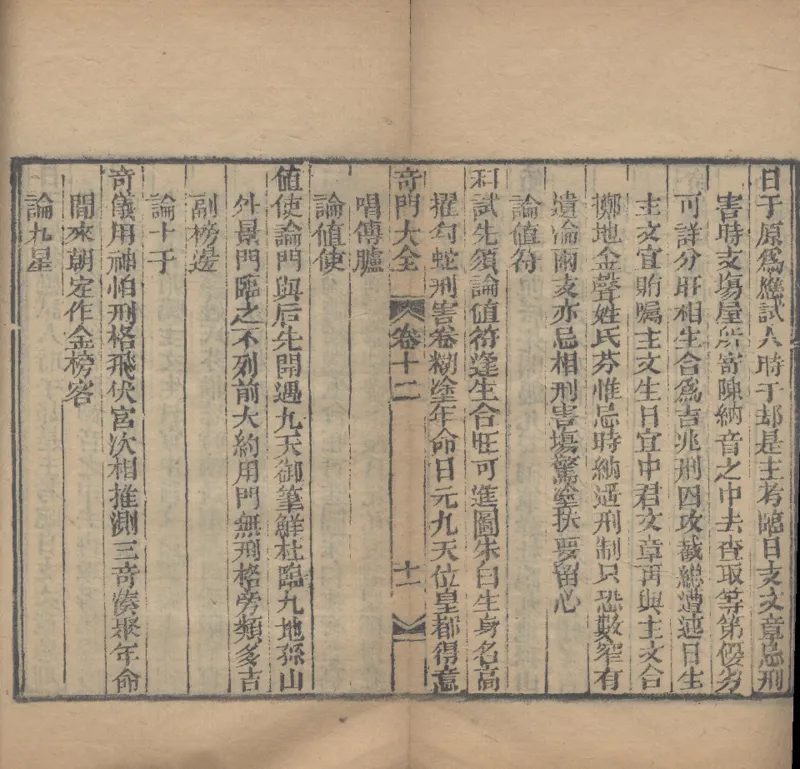 日干原為應試人時干却是主考臨日支文章忌刑
害時支塲屋所寄陳納音之中去查取等第優劣
可詳分肝相生合為吉兆刑囚攻截總遭迍日生
主文宜貽嘱主文生日宜中君文章再與主文合
擲地金聲姓氏芬惟忌時納遥刑制只恐數窄有
遺淪兩支亦忌相刑害塲驚墊扶要留心
論值符
科試先須論值符逢生合旺可進圖朱白生身名高
擢勾蛇刑害卷糊塗年命日元九天位皇都得意
奇門大全 卷十二 十一
唱傳臚
論值使
值使論門與后先開遇九天御筆鮮杜臨九地孫山
外景門臨之不列前大約用門無刑格旁頻多吉
副榜邊
論十干
奇儀用神怕刑格飛伏宮次相推測三奇湊聚年命
間來朝定作金榜客
論九星